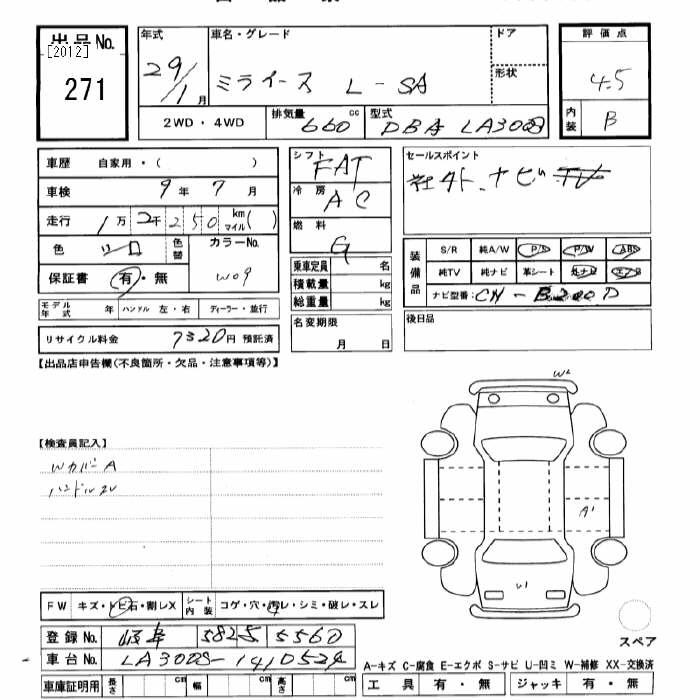 出品No.
[2012]
271
年式
29/1月
車名・グレード
ミライース L-SA
ドア
形状
評価点
4.5
内装
B
2WD・4WD
排気量 660 cc
型式 DBA LA300S
車歴 自家用・( )
車検 9年 7月
走行 1万2千250 km マイル( )
色 シロ 色替
カラーNo. W09
保証書 有・無
モデル年式 年 ハンドル 左・右 ディーラー・並行
リサイクル料金 7320円 預託済
シフト FAT
冷房 AC
燃料 G
乗車定員 名
積載量 kg
総重量 kg
名変期限 月 日
セールスポイント
社外ナビ TV
装備品
S/R 純A/W P/S P/W ABS
純TV 純ナビ 革シート 社ナビ エアB
ナビ型番: CH-B200D
後日品
【出品店申告欄(不良箇所・欠品・注意事項等)】
【検査員記入】
Wカバー A
ハンドルスレ
W2
A1
U1
FW キズ・トビ石・割レX シート内装 コゲ・穴・汚レ・シミ・破レ・スレ
登録No. 岐阜 582 5 5560
車台No. LA300S-1410524
スペア
A-キズ C-腐食 E-エクボ S-サビ U-凹ミ W-補修 XX-交換済
車庫証明用 長さ cm 幅 cm 高さ cm
工具 有・無 ジャッキ 有・無